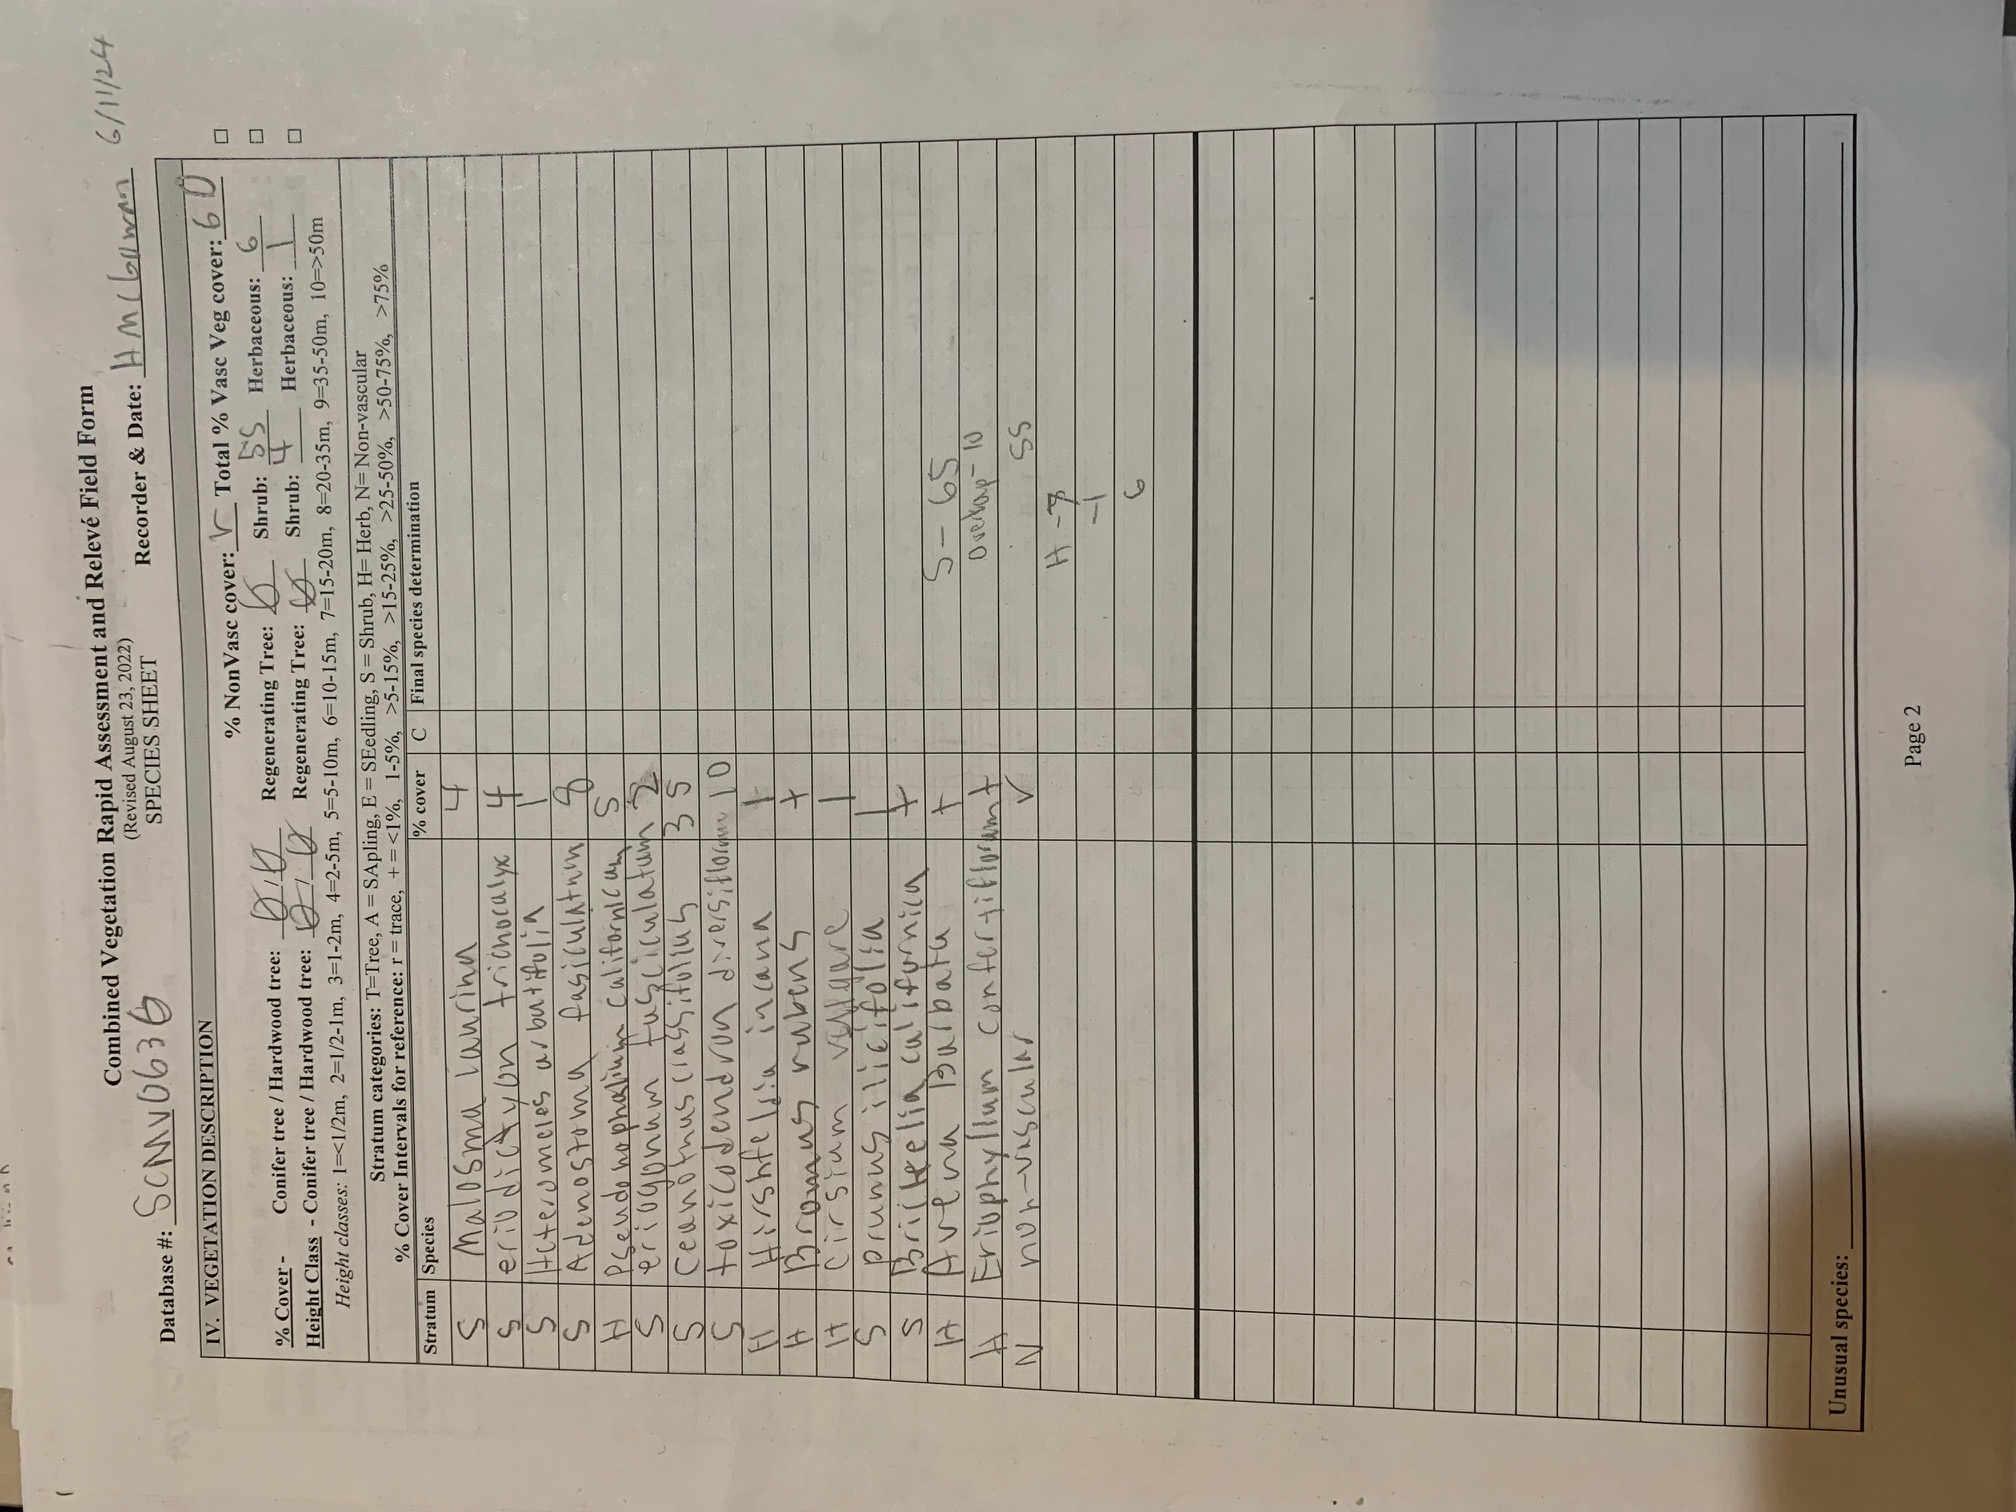 Combined Vegetation Rapid Assessment and Relevé Field Form
(Revised August 23, 2022)
SPECIES SHEET
Database #: SCMV0636 Recorder & Date: HMcGowan 6/11/24
IV. VEGETATION DESCRIPTION
% NonVasc cover: r Total % Vasc Veg cover: 60 □
% Cover - Conifer tree / Hardwood tree: Ø / Ø Regenerating Tree: Ø Shrub: 55 Herbaceous: 6 □
Height Class - Conifer tree / Hardwood tree: Ø / Ø Regenerating Tree: Ø Shrub: 4 Herbaceous: 1 □
Height classes: 1=<1/2m, 2=1/2-1m, 3=1-2m, 4=2-5m, 5=5-10m, 6=10-15m, 7=15-20m, 8=20-35m, 9=35-50m, 10=>50m
Stratum categories: T=Tree, A = SApling, E = SEedling, S = Shrub, H= Herb, N= Non-vascular
% Cover Intervals for reference: r = trace, + = <1%, 1-5%, >5-15%, >15-25%, >25-50%, >50-75%, >75%
Stratum Species % cover C Final species determination
S Malosma laurina 4
S eriodictyon trichocalyx 4
S Heteromeles arbutifolia 1
S Adenostoma fasiculatum 8
H Pseudohophalium californicum 5
S eriogonum fusciculatum 2
S Ceanothus classifolius 35
S toxicodendron diversiflorum 10
H Hirshfeldia incana 1
H Bromus rubens +
H Cirsium vulgare 1
S prunus ilicifolia 1
S Brickelia californica +
H Avena Barbata + S - 65
H Eriophyllum confertiflorum + overlap - 10
N non-vascular r 55
H - 7
- 1
6
Unusual species:
Page 2